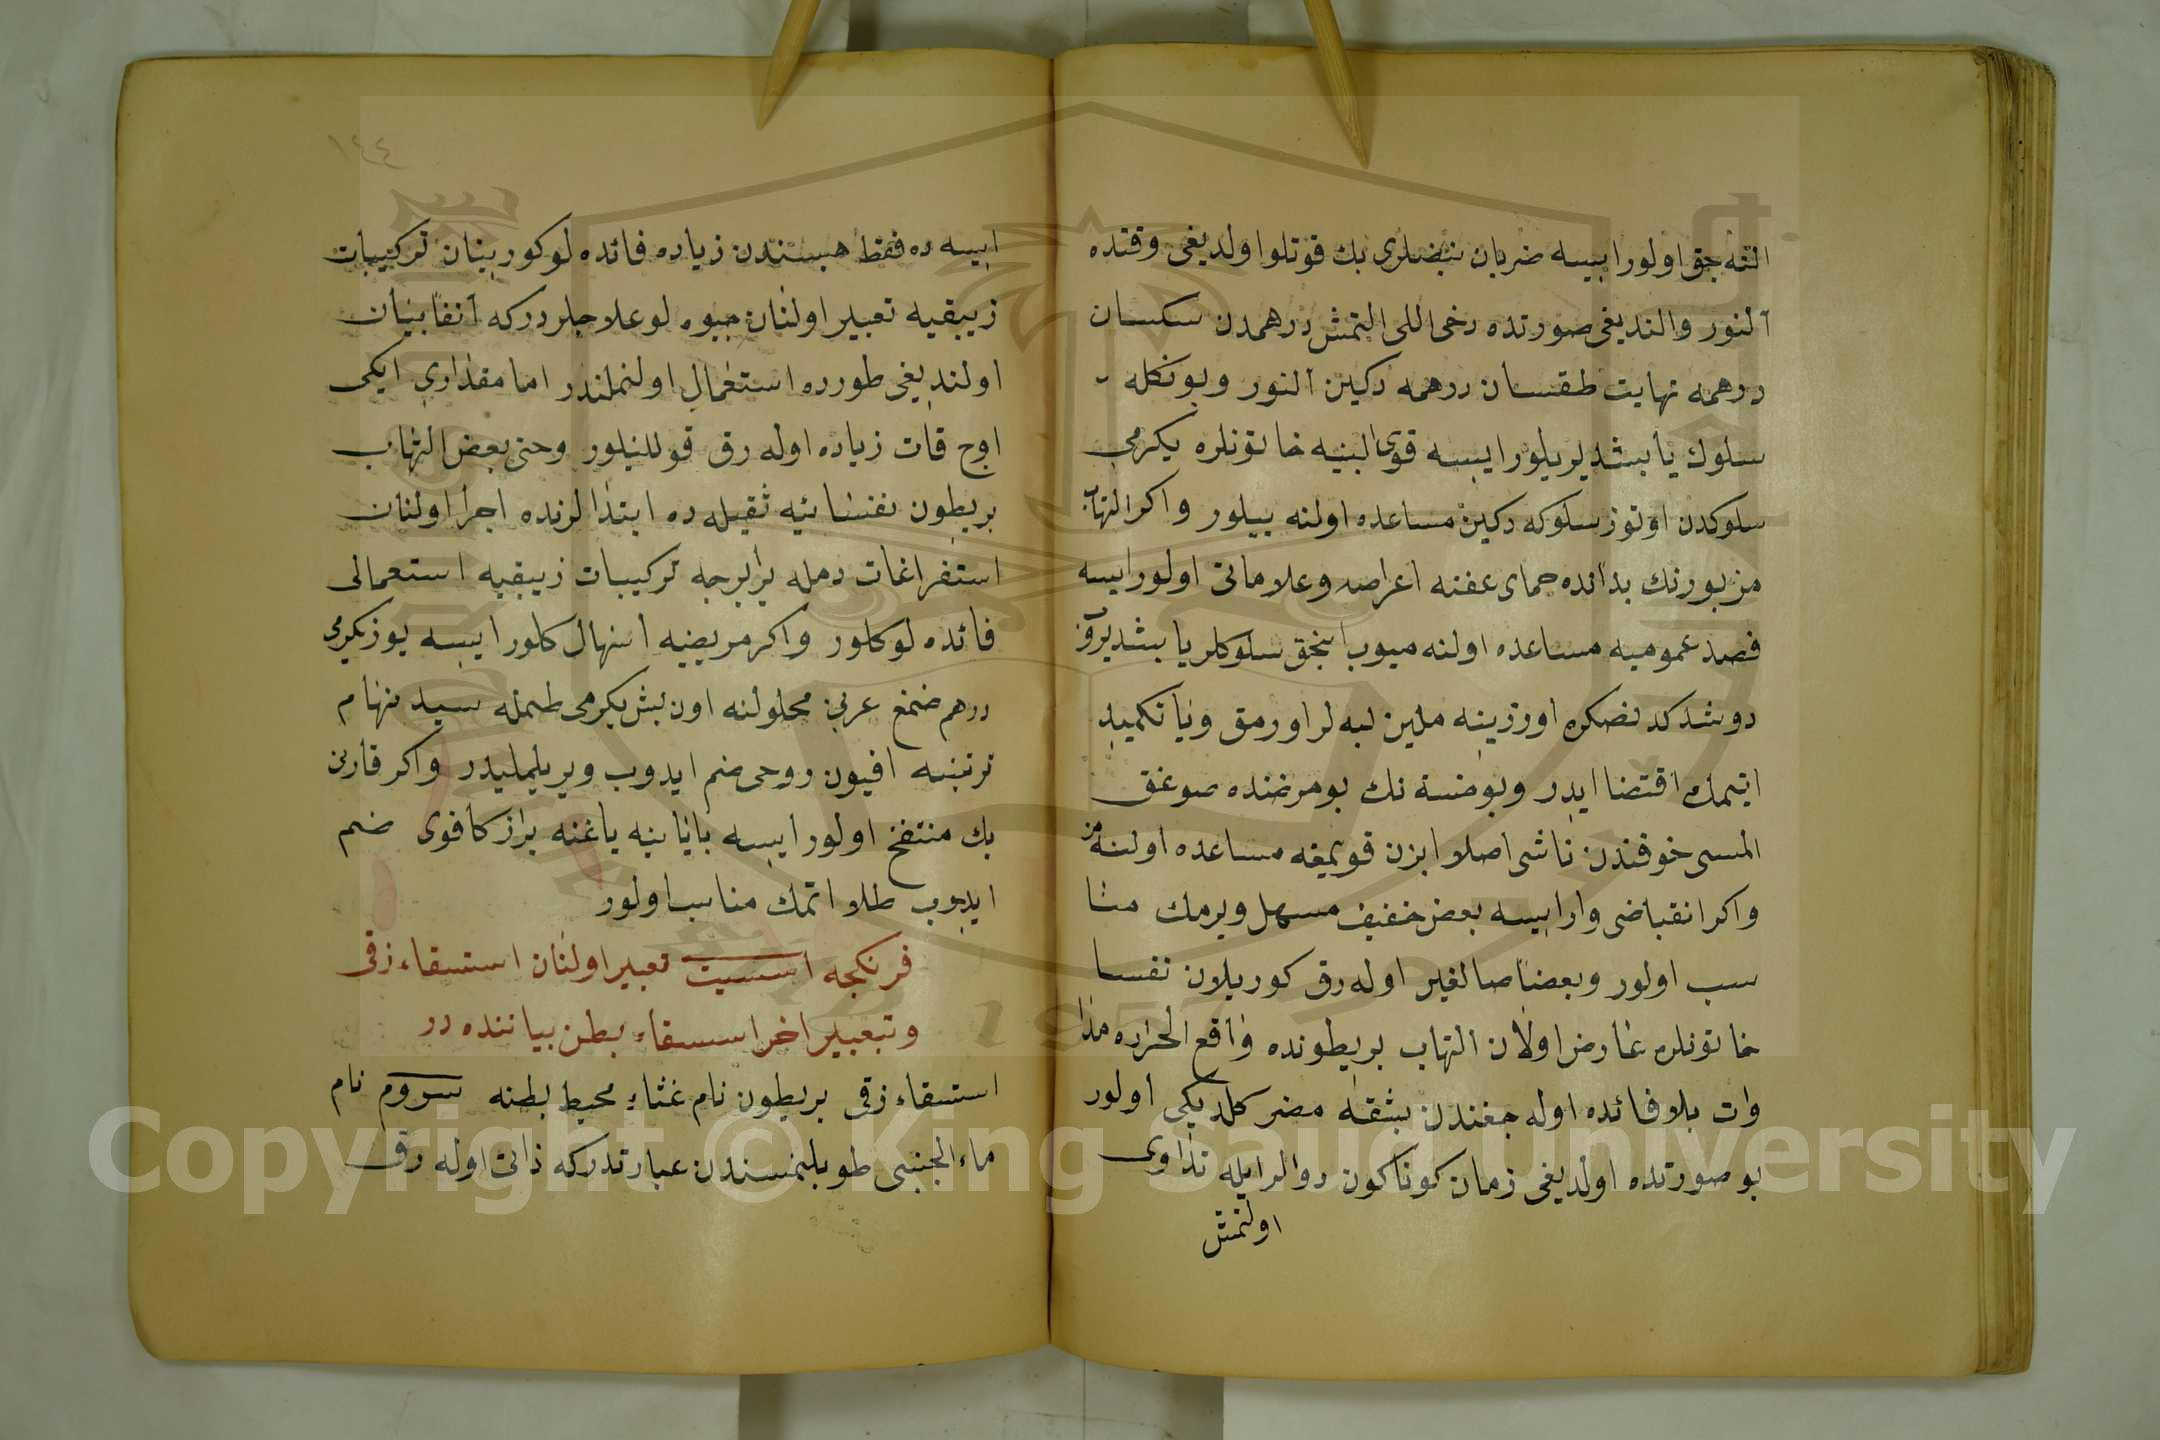 النه جق اولور ايسه ضربان نبضلرى بك قوتلو اولديغى وقتده
آلنور والنديغى صورتده دخى اللى التمش درهمدن سكسان
درهمه نهايت طقسان درهمه دكين آلنور وبونكله
سلوك يابشديريلور ايسه قوى البنيه خاتونلره يكرمى
سلوكدن اوتوز سلوكه دكين مساعده اولنه بيلور واكر التهاب
مزبورنك بدائده حماى عفنه اعراض وعلاماتى اولور ايسه
فصد عموميه مساعده اولنه ميوب انجق سلوكلر يابشديروب
دوشدكدنصكره اوزرينه ملين لبه لر اورمق ويا تكميد
ايتمك اقتضا ايدر وبو خسته نك بو مرضنده صوغق
المسى خوفندن ناشى اصلا ابزن قويمغه مساعده اولنه مز
واكر انقباضى وار ايسه بعض خفيف مسهل ويرمك منا
سب اولور وبعضا صالغين اوله رق كوريلان نفسا
خاتونلره عارض اولان التهاب بريطونده واقع الحزده مدا
وات بلا فائده اوله جغندن بشقه مضر كلديكى اولور
بو صورتده اولديغى زمان كوناكون دوالر ايله تداوى
اولنمش
١٤٤
ايسه ده فقط هبسندن زياده فائده لو كورينان تركيبات
زيبقيه تعبير اولنان جيوه لو علاجلردركه آنفا بيان
اولنديغى طورده استعمال اولنملندر اما مقدارى ايكى
اوج قات زياده اوله رق قوللنيلور وحتى بعض التهاب
بريطون نفسائيه ثقيله ده ابتدالرنده اجرا اولنان
استفراغات دمله برابرجه تركيبات زيبقيه استعمالى
فائده لو كلور واكر مريضه اسهال كلور ايسه يوزيكرمى
درهم ضمغ عربى محلولنه اون بش يكرمى طمله سيدنهام
ترتبنه افيون روحى ضم ايدوب ويريلمليدر واكر قارنى
بك منتفخ اولور ايسه بابانيه ياغنه براز كافوى ضم
ايدوب طلا اتمك مناسب اولور
فرنكجه اسسيت تعبير اولنان استسقاء زقى
وتبعبير اخر استسقاء بطن بياننده در
استسقاء زقى بريطون نام غشاء محيط بطنه سروم نام
ماء الجنبى طوبلنمسندن عبارتدركه ذاتى اوله رق
Copyright © King Saud University
1957